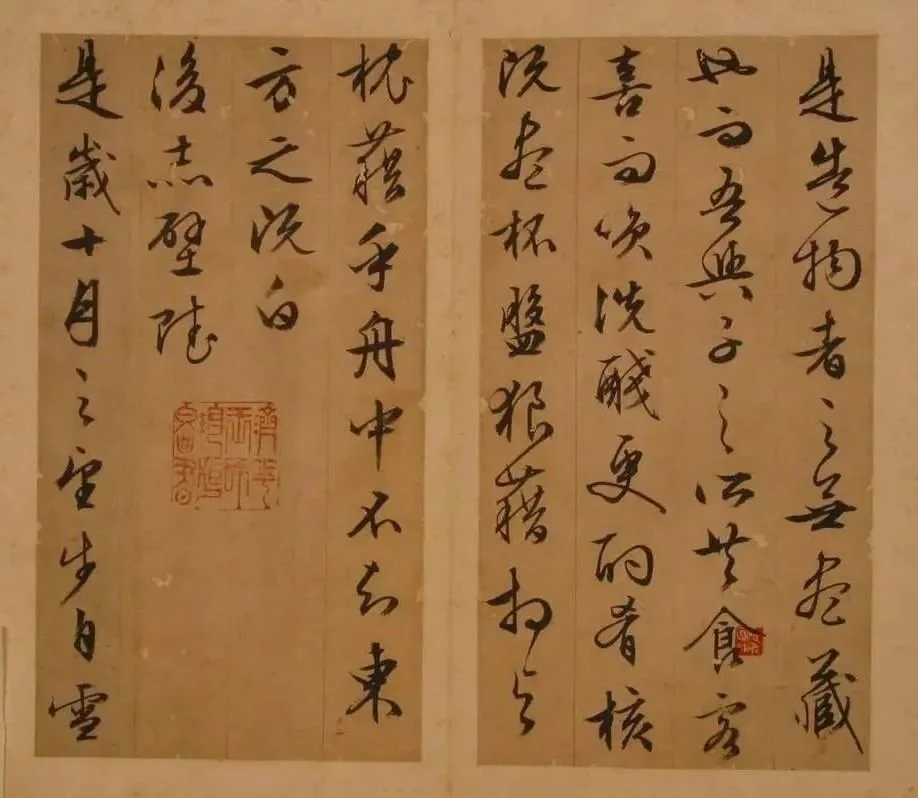 是造物者之無盡藏
也而吾與子之所共食客
喜而笑洗醆更酌肴核
既盡杯盤狼藉相与
枕藉乎舟中不知東
方之既白
後赤壁賦
是歲十月之望步自雪